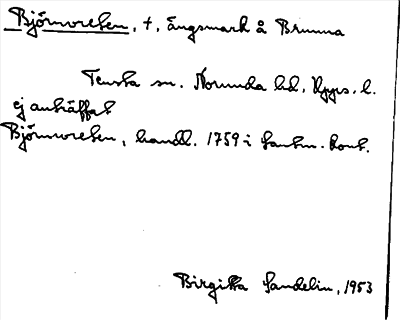 Björnvreten, +, ängsmark å Brunna
Tensta sn. Norunda hd, Upps. l.
ej anträffat
Björnvreten, handl. 1759 i Lantm. kont.
Birgitta Sandelin, 1953